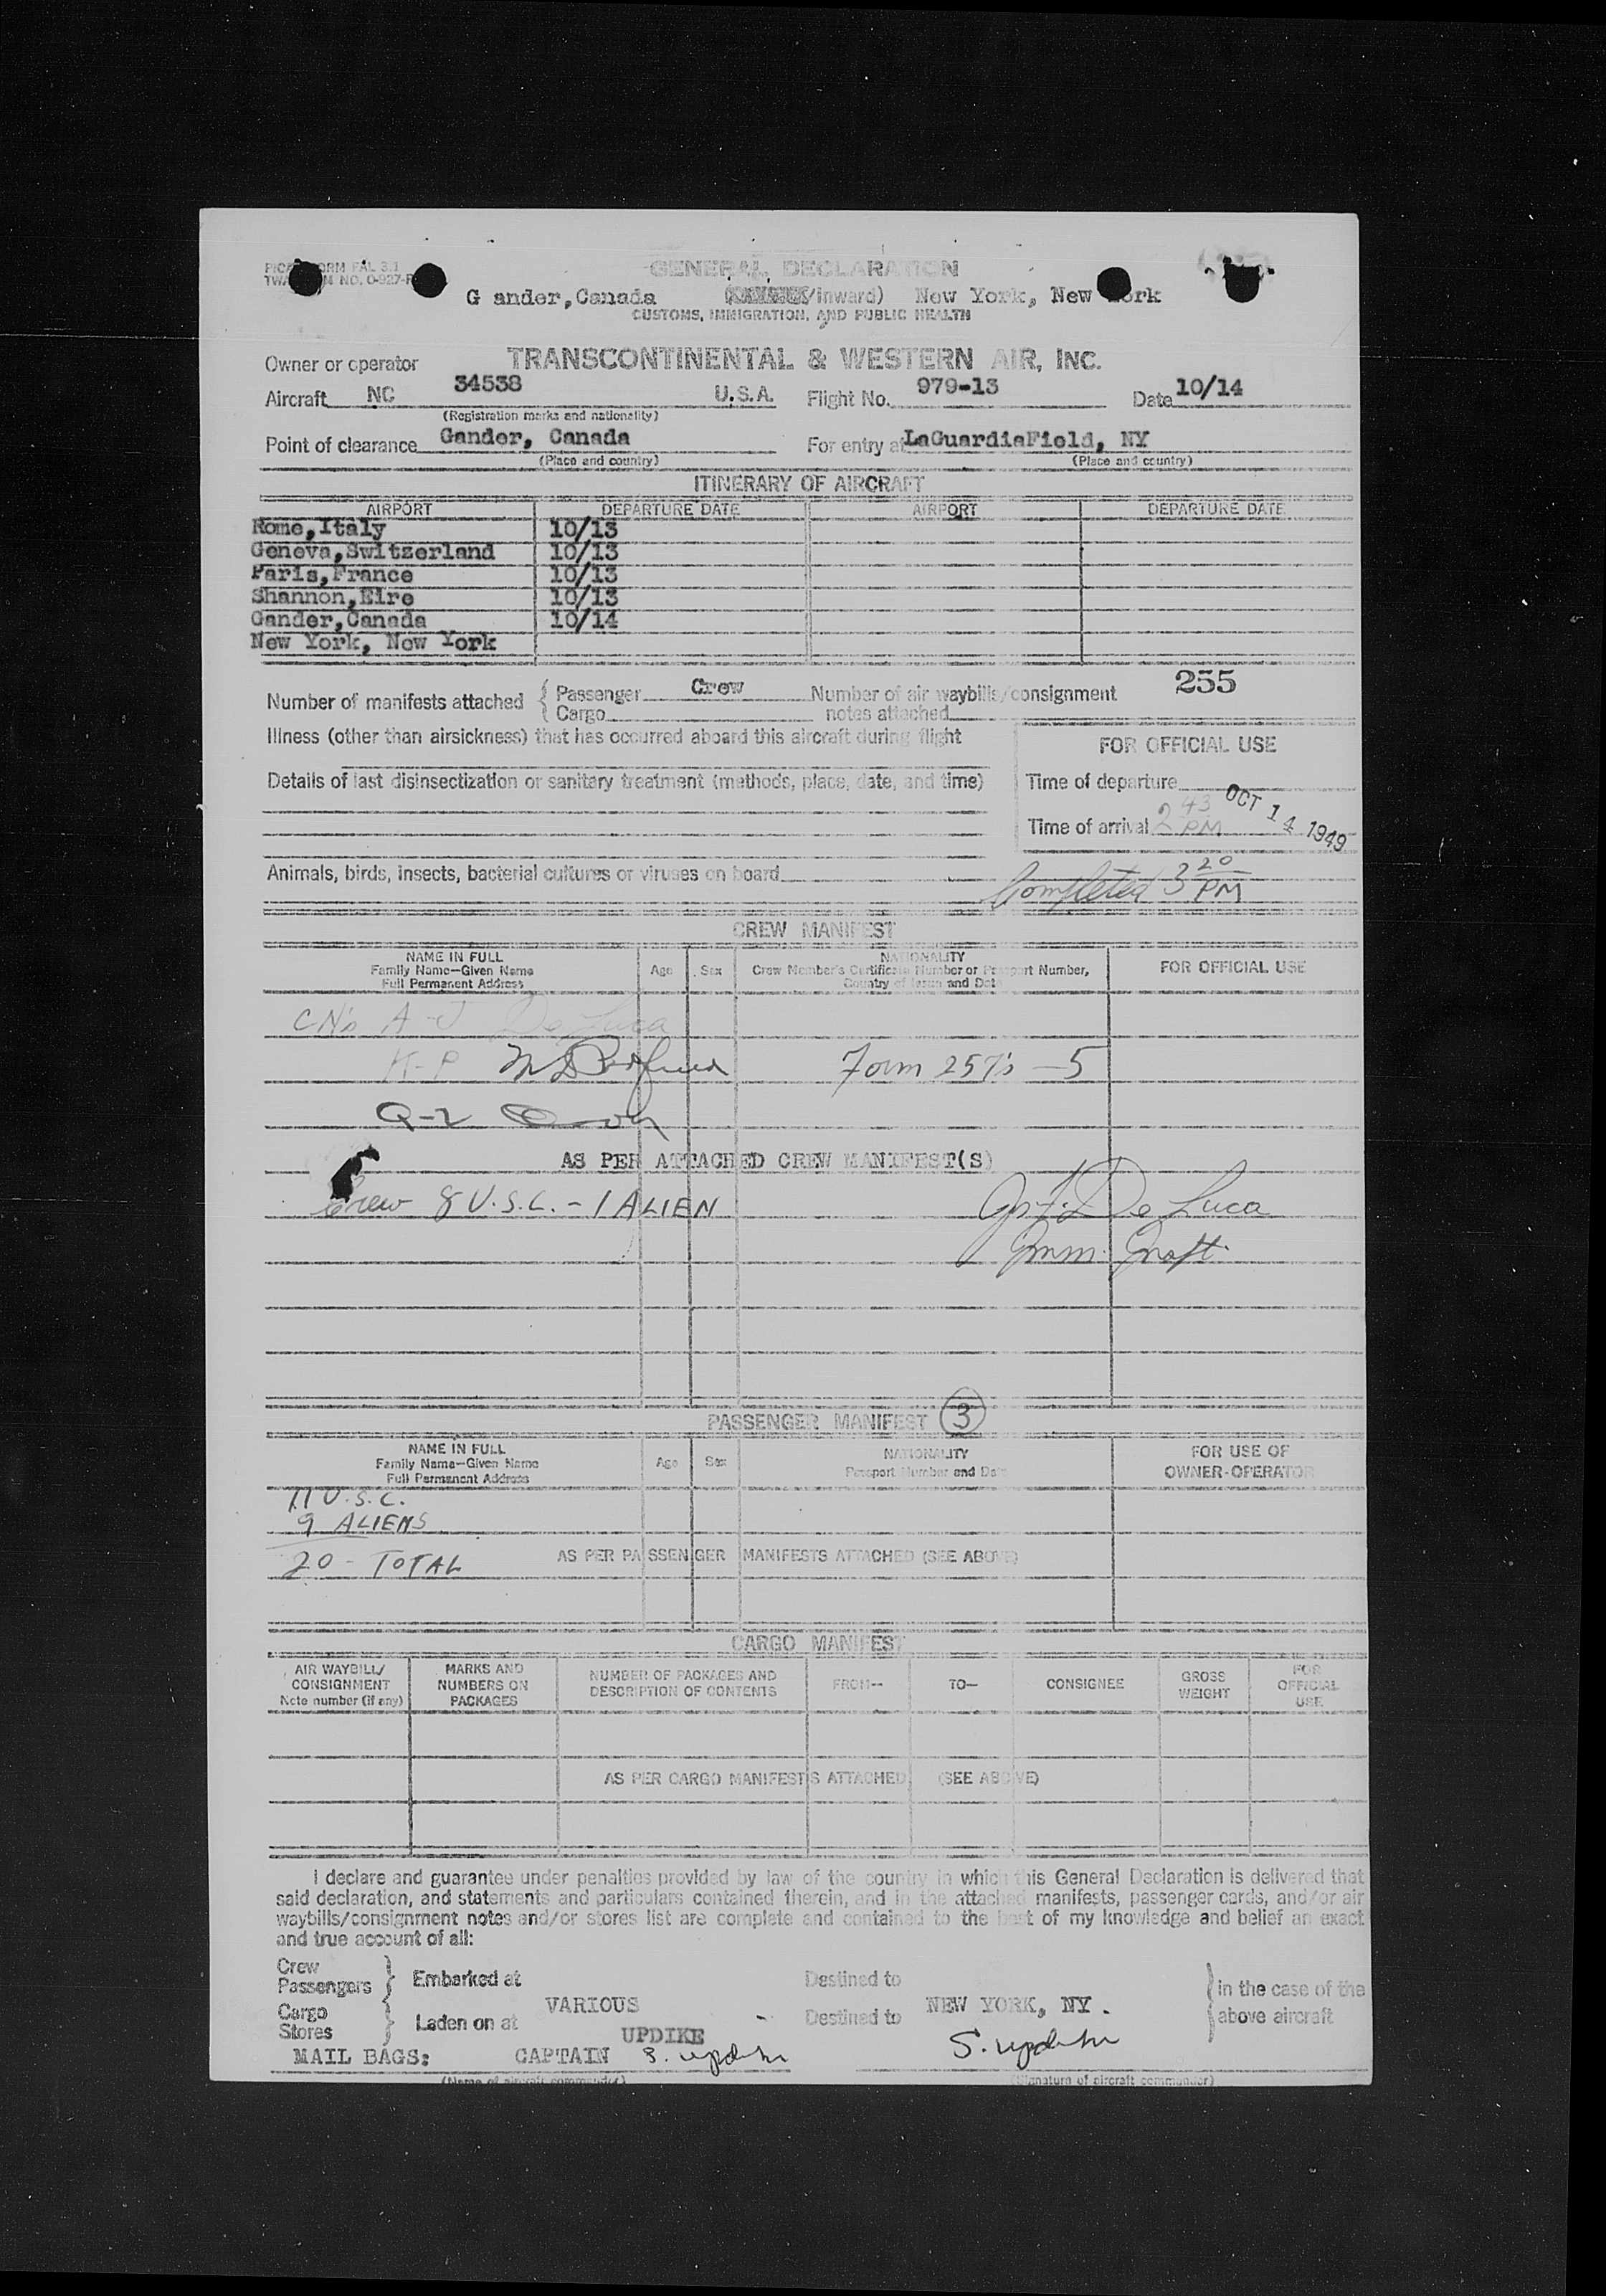 GENERAL DECLARATION
G ander,Canada /Inward) New York, New
CUSTOMS, IMMIGRATION, AND PUBLIC HEALTH
Owner or operator TRANSCONTINENTAL & WESTERN AIR, INC.
Aircraft NC 34538 U.S.A. Flight No. 979-13 Date 10/14
(Registration marks and nationality)
Point of clearance Gander, Canada For entry at LaGuardiaField, NY
(Place and country) (Place and country)
ITINERARY OF AIRCRAFT
AIRPORT DEPARTURE DATE AIRPORT DEPARTURE DATE
Rome,Italy 10/13
Geneva,Switzerland 10/13
Paris,France 10/13
Shannon,Eire 10/13
Gander,Canada 10/14
New York, New York
Number of manifests attached { Passenger Crew Number of air waybills/consignment 255
Cargo notes attached
Illness (other than airsickness) that has occurred aboard this aircraft during flight
FOR OFFICIAL USE
Details of last disinsectization or sanitary treatment (methods, place, date, and time)
Time of departure
OCT 14 1949
Time of arrival 2 43 PM
Animals, birds, insects, bacterial cultures or viruses on board
Completed 3 20 PM
CREW MANIFEST
NAME IN FULL Family Name—Given Name Full Permanent Address Age Sex NATIONALITY Crew Member's Certificate Number or Passport Number, Country of Issue and Date FOR OFFICIAL USE
A-J De Luca
K-P
Form 257's - 5
Q-2
AS PER ATTACHED CREW MANIFEST(S)
Crew 8 U.S.C. - 1 ALIEN
De Luca
Imm. Inspt.
PASSENGER MANIFEST 3
NAME IN FULL Family Name—Given Name Full Permanent Address Age Sex NATIONALITY Passport Number and Date FOR USE OF OWNER-OPERATOR
11 U.S.C.
9 ALIENS
20 - TOTAL AS PER PASSENGER MANIFESTS ATTACHED (SEE ABOVE)
CARGO MANIFEST
AIR WAYBILL/ CONSIGNMENT Note number (if any) MARKS AND NUMBERS ON PACKAGES NUMBER OF PACKAGES AND DESCRIPTION OF CONTENTS FROM— TO— CONSIGNEE GROSS WEIGHT FOR OFFICIAL USE
AS PER CARGO MANIFESTS ATTACHED (SEE ABOVE)
I declare and guarantee under penalties provided by law of the country in which this General Declaration is delivered that
said declaration, and statements and particulars contained therein, and in the attached manifests, passenger cards, and/or air
waybills/consignment notes and/or stores list are complete and contained to the best of my knowledge and belief an exact
and true account of all:
Crew
Passengers } Embarked at Destined to } in the case of the
Cargo VARIOUS NEW YORK, NY.
Stores } Laden on at Destined to above aircraft
UPDIKE
MAIL BAGS: CAPTAIN S. Updike S. Updike
(Name of aircraft commander) (Signature of aircraft commander)